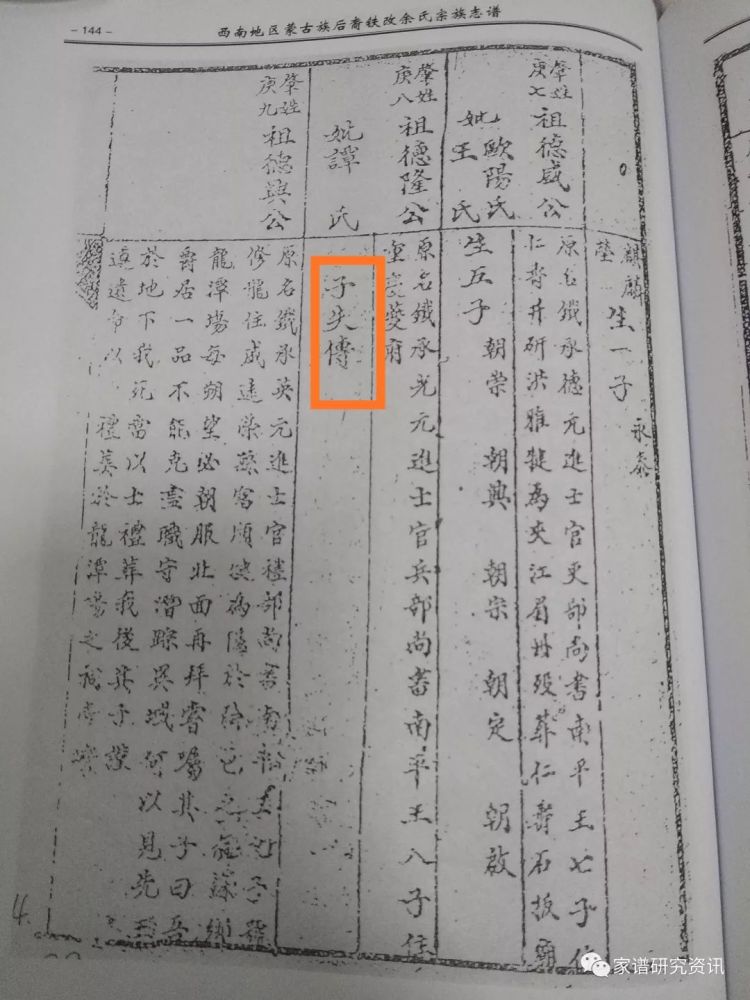 - 144 -
西南地区蒙古族后裔铁改余氏宗族志谱
麒麟
塋 生一子 永泰
肇姓
庚七 祖德威公
原名鐵承德元進士官吏部尚書南平王七子住
仁壽井研洪雅犍為夾江眉州歿葬仁壽石板廟
妣歐陽氏
王氏
生五子 朝崇 朝興 朝宗 朝定 朝啟
肇姓
庚八 祖德隆公
原名鐵承光元進士官兵部尚書南平王八子住
重慶夔府
妣譚氏
子失傳
肇姓
庚九 祖德興公
原名鐵承英元進士官禮部尚書南平王九子
修龍住威遠榮
龍潭場每朔望必朝服北面再拜嘗囑其子曰吾
爵居一品不能克盡職守潛踪異域何以見先
於地下我死當以士禮葬我後其子
遵遺命以 禮葬於龍潭場之
4.
家谱研究资讯